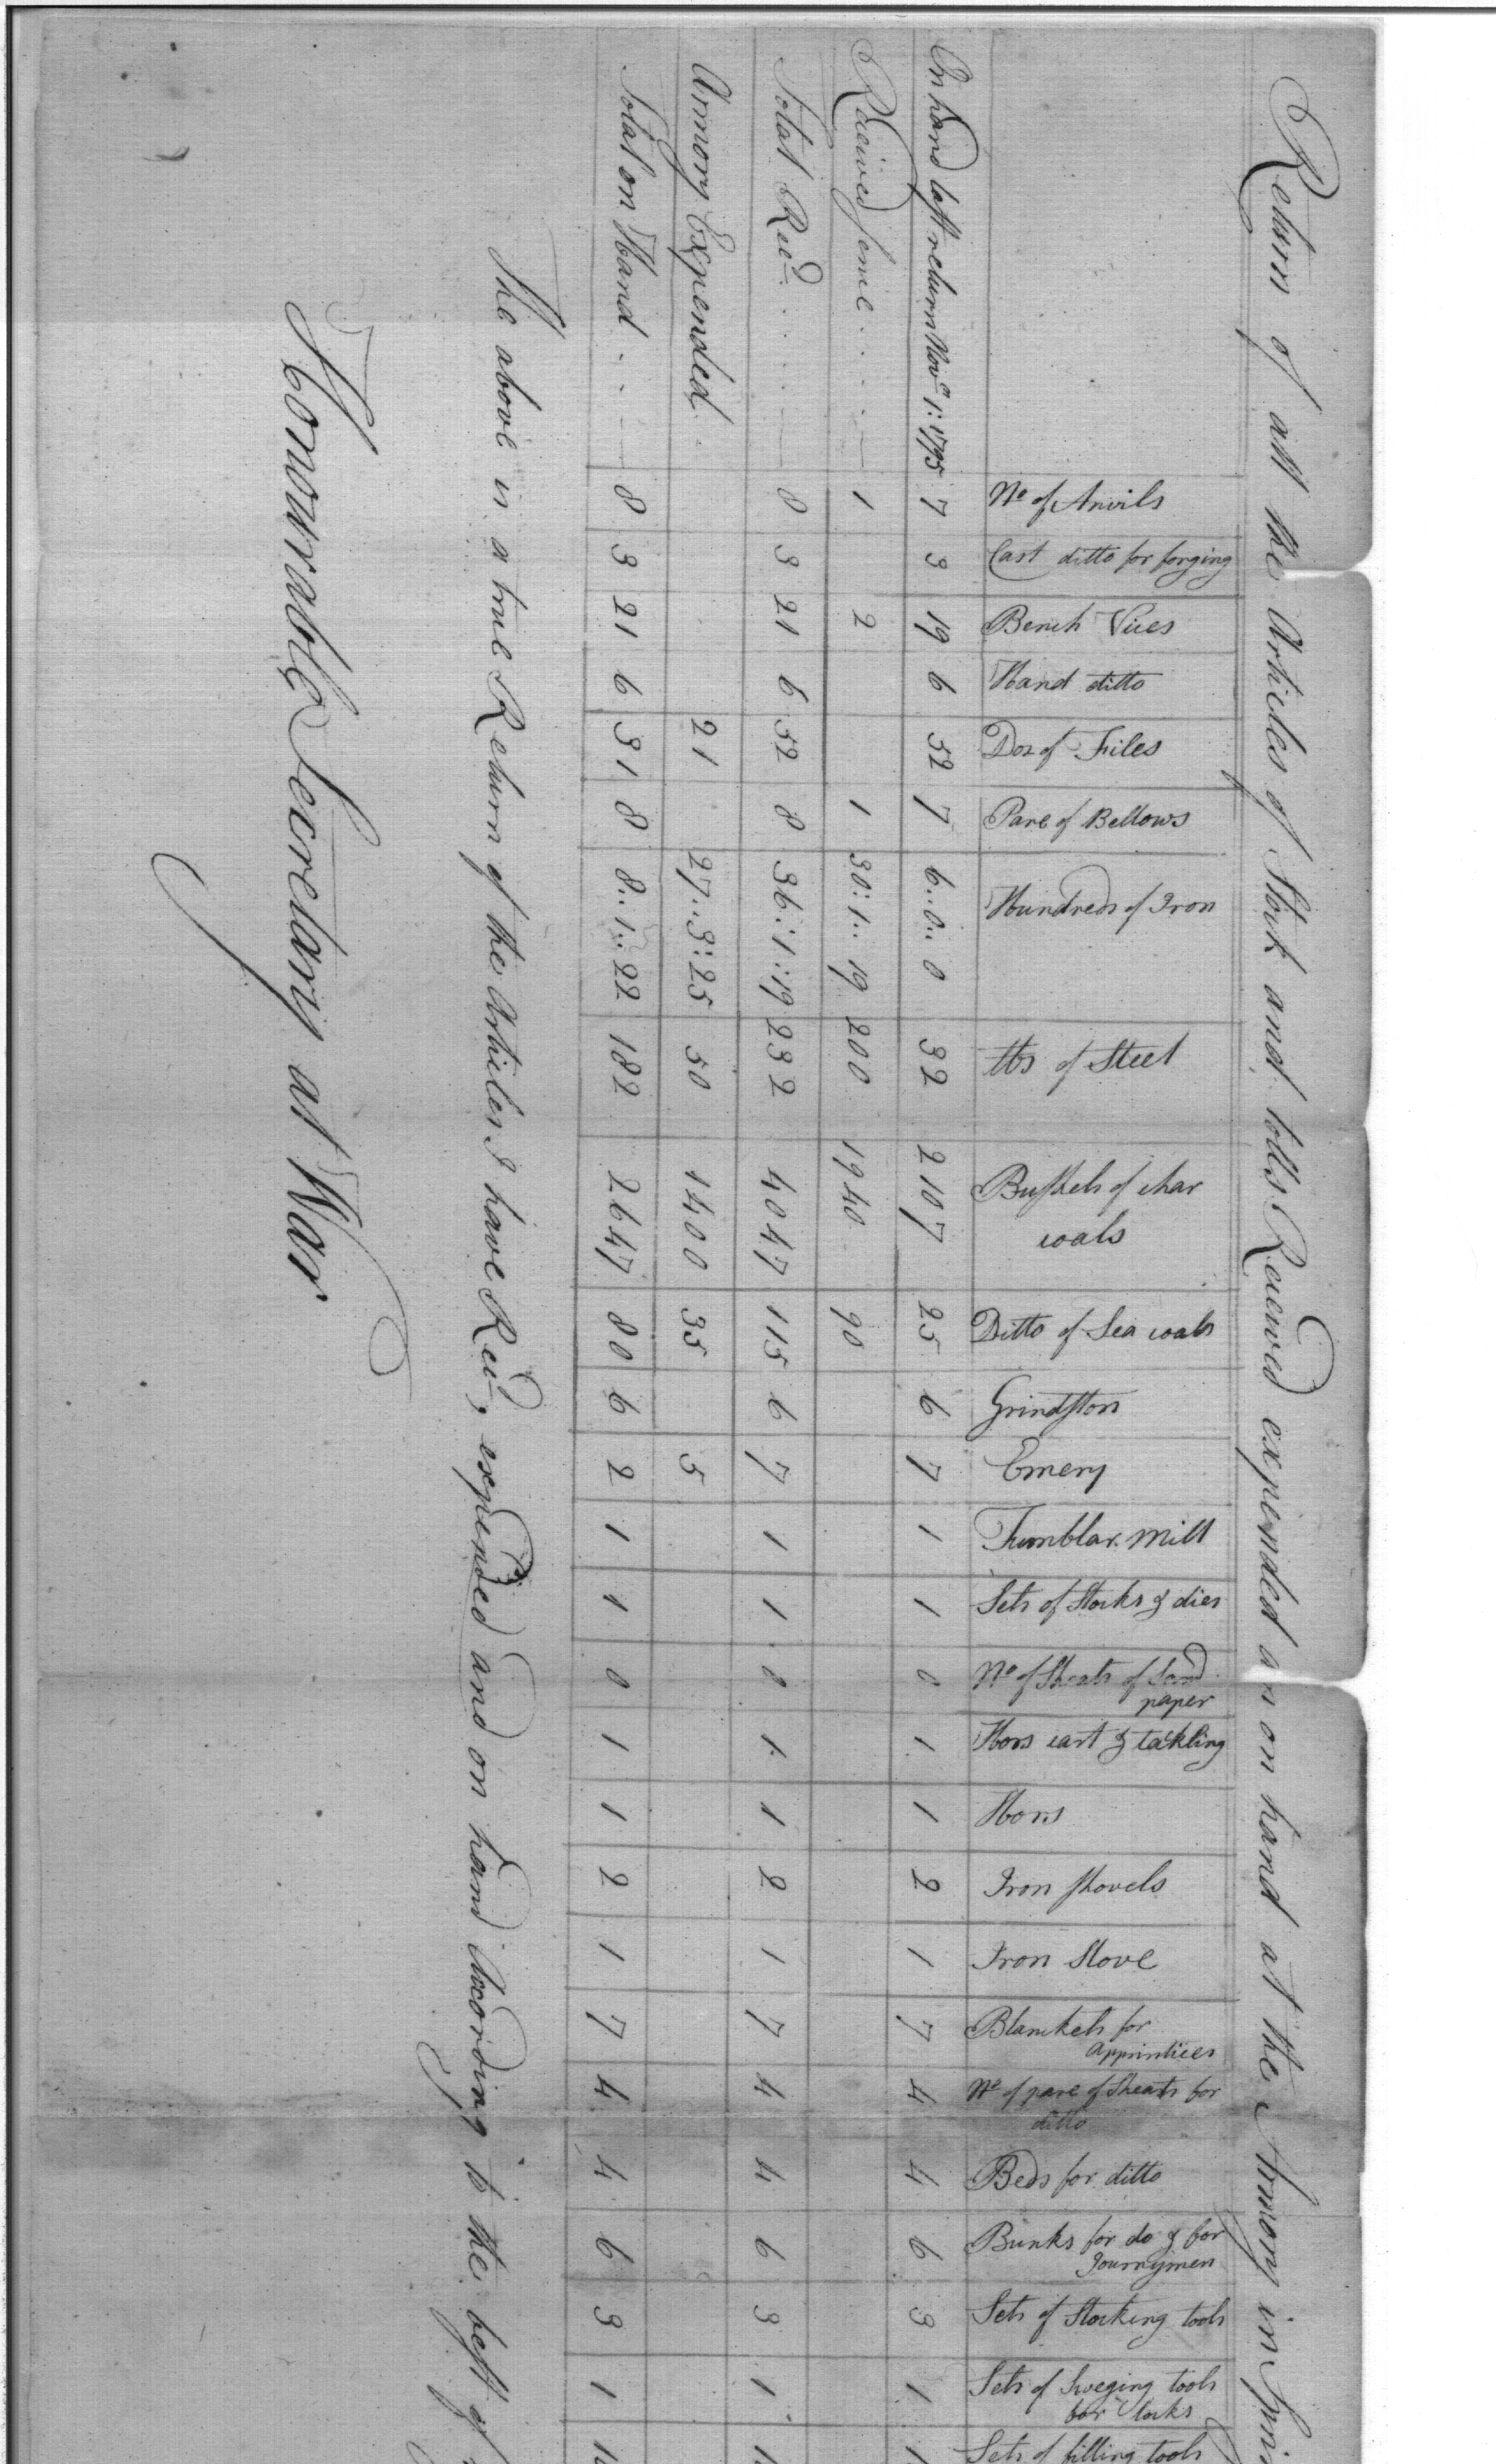 Return of all the Articles of Stock and tolls Received expended as on hand at the Armory in Sprin
No of Anvils
Cast ditto for forging
Bench Vices
Hand ditto
Doz of Files
Pare of Bellows
Hundreds of Iron
lbs of Steel
Bushels of char
coals
Ditto of Sea coals
Grindstons
Emery
Tumblar mill
Sets of Stocks & dies
No of Sheats of Sand
paper
Hors cart & tackling
Hors
Iron shovels
Iron Stove
Blankets for
apprintices
No of pare of Sheats for
ditto
Beds for ditto
Bunks for do & for
Journymen
Sets of Stocking tools
Sets of Sweging tools
for Locks
Sets of filling tools
On hand last return Novr 1: 1795 7 3 19 6 52 7 6:0:0 32 2107 25 6 7 1 1 0 1 1 2 1 7 4 4 6 3 1 1
Received sence 1 2 1 30:1:19 200 1940 90
Total Recd 8 3 21 6 52 8 36:1:19 232 4047 115 6 7 1 1 0 1 1 2 1 7 4 4 6 3 1 1
Armory Expended 21 27:3:25 50 1400 35 5
Total on Hand 8 3 21 6 31 8 8:1:22 182 2647 80 6 2 1 1 0 1 1 2 1 7 4 4 6 3 1 1
The above is a true Return of the Articles I have Recd, expended and on hand According to the best of
Honourable Secretary at War